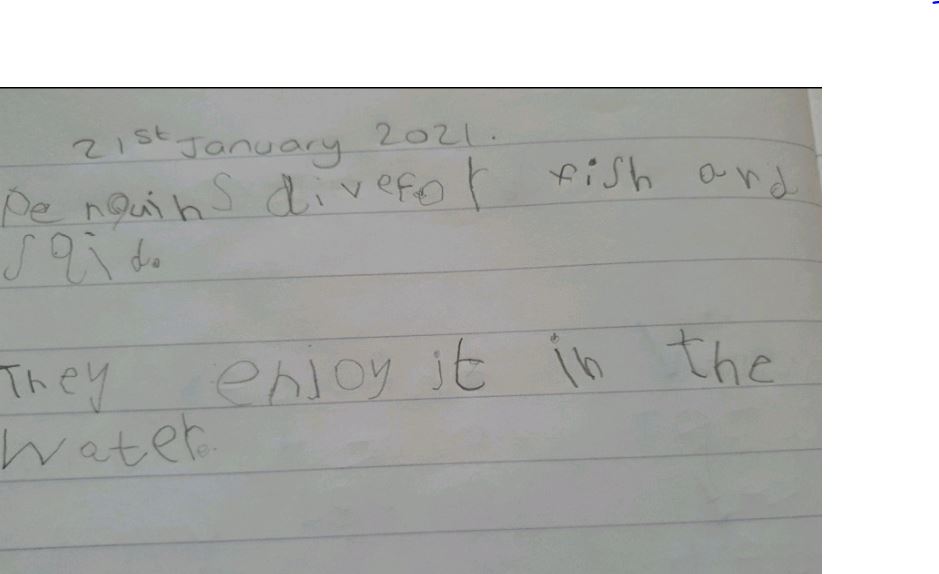 21st January 2021.
Penquins divefor fish and
sqid.
They enjoy it in the
water.